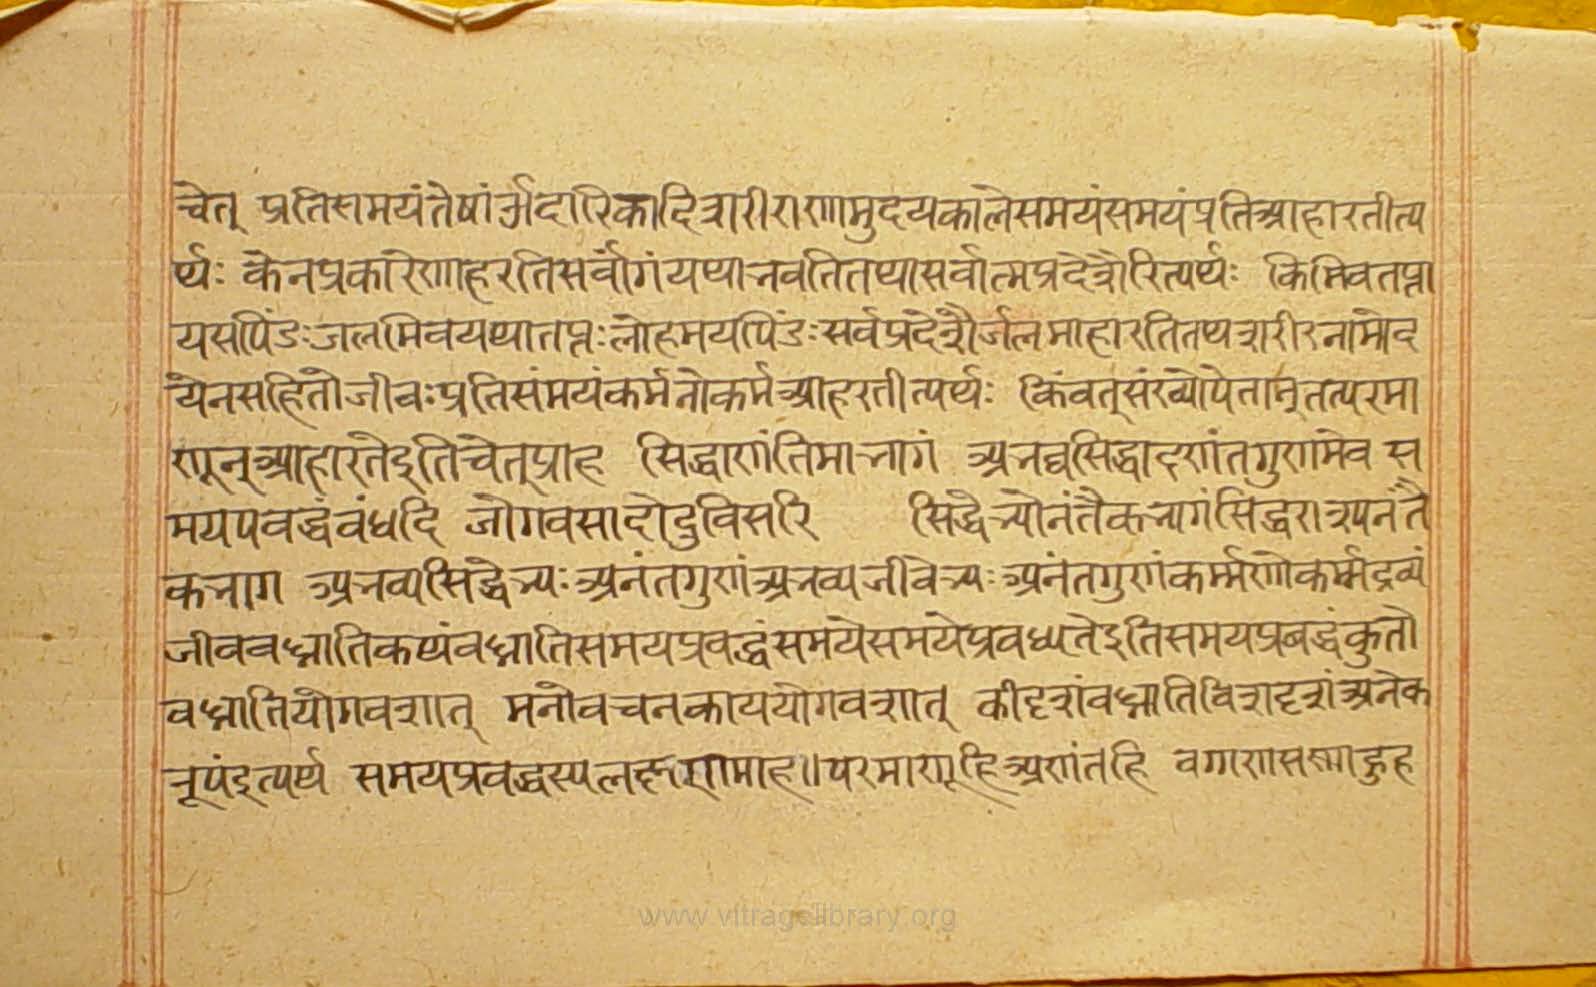 चेत् प्रतिसमयंतेषांऔदारिकादिशरीराणामुदयकालेसमयंसमयंप्रतिआहारतीत्य
र्थः केनप्रकारेणाहरतिसर्वांगंयथाभवतितथासर्वात्मप्रदेशैरित्यर्थः किमिवतप्ता
यसपिंडःजलमिवयथातप्तःलोहमयपिंडःसर्वप्रदेशैर्जलमाहारतितथशरीरनामोद
येनसहितोजीवःप्रतिसंमयंकर्मनोकर्मआहरतीत्यर्थः किंवत्संख्योपेतान्तत्परमा
णून्आहारतेइतिचेत्प्राह सिद्धाणंतिमाभागं अभव्वसिद्धादणंतगुणमेव स
मयपवद्धंवंधदि जोगवसादोदुविसरि सिद्धेभ्योनंतैकभागंसिद्धराश्यनंतै
कभाग अभव्यसिद्धेभ्यःअनंतगुणंअभव्यजीवेभ्यःअनंतगुणंकर्म्मणोकर्म्मद्रव्यं
जीववध्नातिकथंवध्नातिसमयप्रवद्धंसमयेसमयेप्रवध्यतेइतिसमयप्रबद्धंकुतो
वध्नातियोगवशात् मनोवचनकाययोगवशात् कीदृशंवध्नातिविशदृशंअनेक
रूपंइत्यर्थ समयप्रवद्धस्यलक्षणमाह॥परमाणूहिअणंतहि वगाणसण्णाहुह
www.vitragelibrary.org